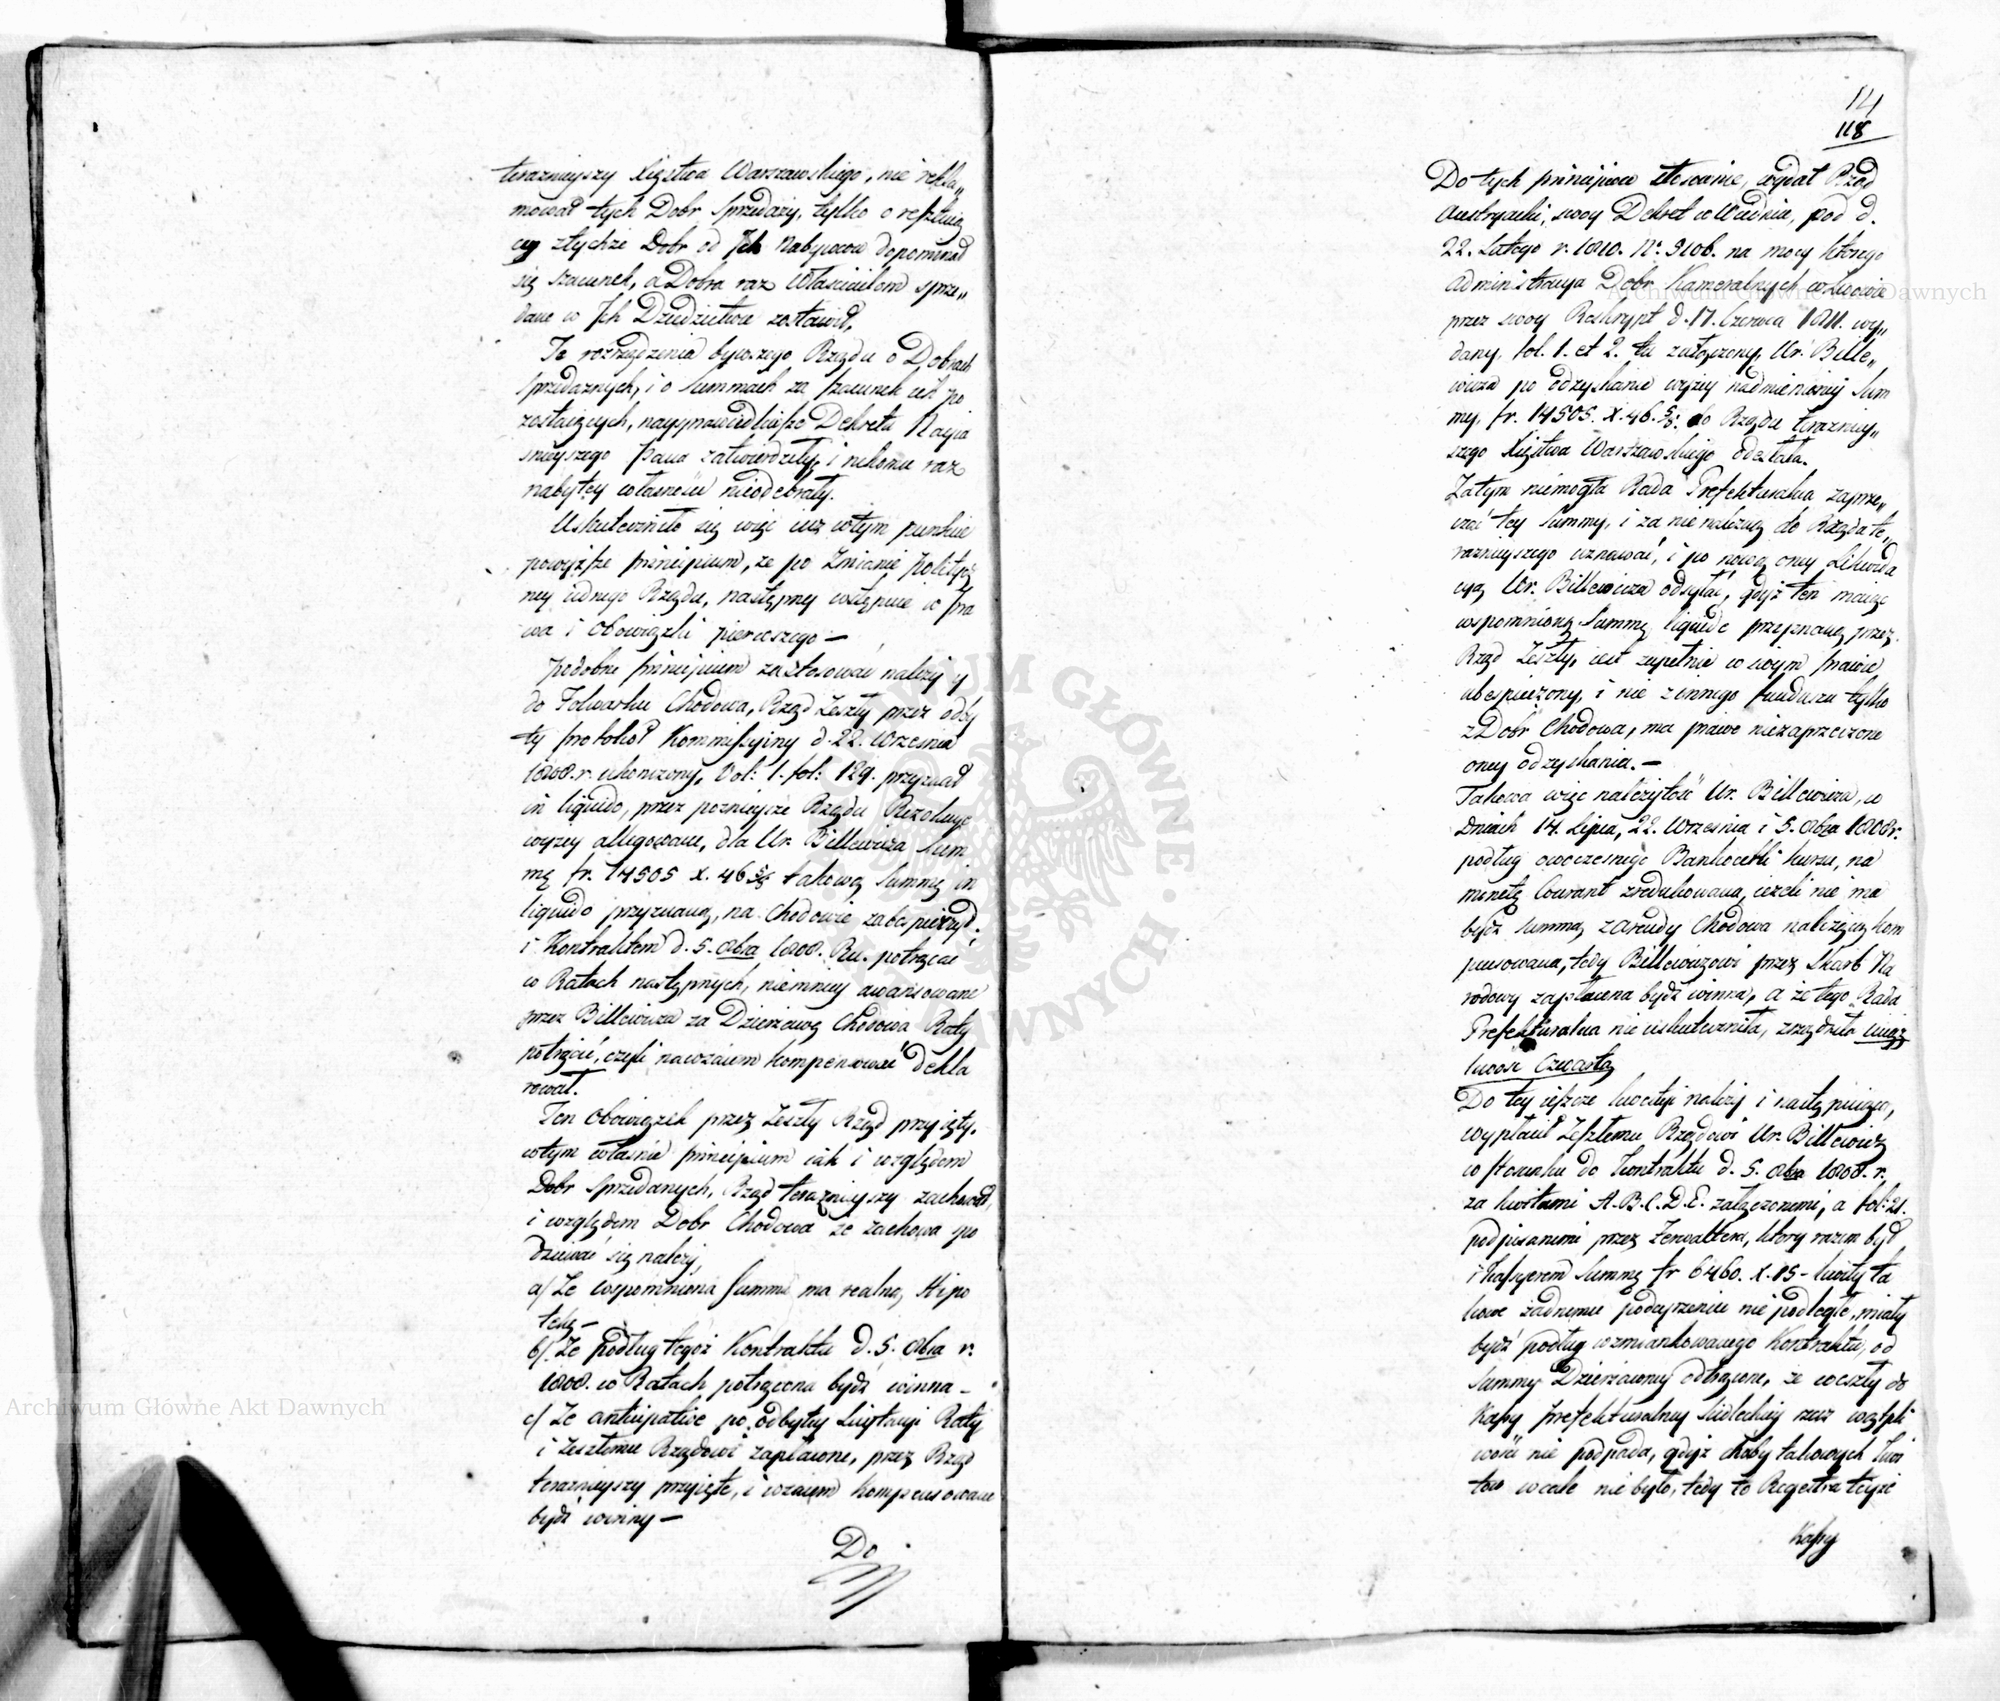 teraznieyszy Xięztwa Warszawskiego, nie rekla„
mował tych Dobr Sprzedaży, tylko o resztuią
cy ztychże Dobr od Ich Nabywcow dopominał
się szacunek, a Dobra raz Właścicielom sprze„
dane w Ich Dziedzictwie zostawił.
Te rozrządzenia bywszego Rządu o Dobrach
Sprzedaznych, i o Summach za szacunek ich po
zostaiących, naysprawiedliwsze Dekreta Nayia
snieyszego Pana zatwierdziły, i nikomu raz
nabytey własności nieodebrały.
Uskuteczniło się więc iuż wtym punkcie
powyższe principium, że po Zmianie Politycz
ney iednego Rządu, następny wstępuie w Pra
wa i Obowiązki pierwszego —
Podobne principium zastosować należy y
do Folwarku Chodowa, Rząd Zeszły przez odby
ty Protokoł Kommissyiny d. 22. Września
1808. r. ukonczony, Vol: 1. fol: 129. przyznał
in liquido, przez poznieysze Rządu Rezolucye
wyżey allegowane, dla Ur. Billewicza Sum
mę fr. 14505 x. 46 5/8 takową Summę in
liquido przyznaną, na Chodowie zabespieczył,
i Kontraktem d. 5. 8bra 1808. Ru. potrącać
w Ratach następnych, niemniey awansowane
przez Billewicza za Dzierzawę Chodowa Raty
potrącić, czyli nawzaiem kompensować dekla
rował.
Ten Obowiązek przez Zeszły Rząd przyięty,
wtym właśnie principium iak i względem
Dobr Sprzedanych, Rząd teraznieyszy zachował,
i względem Dobr Chodowa że zachowa spo
dziewać się należy,
a/ Że wspomniona Summa ma realną Hipo
tekę —
b/. Że podług tegoż Kontraktu d. 5. 8bra r.
1808. w Ratach potrącona bydź winna —
c/ Że anticipative po odbytey Licytacyi Raty
i Zeszłemu Rządowi zapłacone, przez Rząd
teraznieyszy przyięte, i wzaiem kompensowane
bydź winny —
Do
14
118
Do tych principiow stosownie, wydał Rząd
Austryacki, swoy Dekret w Wiedniu, pod d.
22. Lutego r. 1810. No. 9106. na mocy którego
Administracya Dobr Kameralnych w Lwowie
przez swoy Reskrypt d. 17. Czerwca 1811. wy„
dany, fol. 1. et 2. tu załączony, Ur. Bille„
wicza po odzyskanie wyzey nadmienioney Sum
my, fr. 14505. x. 46. 5/8. do Rządu terazniey„
szego Xięztwa Warszawskiego odesłała.
Zatym niemogła Rada Prefekturalna zaprze„
czać tey Summy, i za nienależącą do Rządu te„
raznieyszego uznawać, i po nową oney Likwida
cyą Ur. Billewicza odsyłać, gdyż ten maiąc
wspomnioną Summę liquide przyznaną przez
Rząd Zeszły, iest zupełnie w swym Prawie
ubespieczony, i nie z innego funduszu tylko
z Dobr Chodowa, ma prawo niezaprzeczone
oney odzyskania. —
Takowa więc należytość Ur. Billewicza, w
Dniach 14. Lipca, 22. Września i 5. 8bra 1808 r.
podług owoczesnego Bankocetli kursu, na
monetę Courant zredukowana, ieżeli nie ma
bydź Summą z Arędy Chodowa należącą kom
pensowana, tedy Billewiczowi przez Skarb Na
rodowy zapłacona bydź winna, a że tego Rada
Prefekturalna nie uskuteczniła, zrządziła uciąż
liwość Czwartą
Do tey ieszcze kwestyi należy i następuiąca,
wypłacił Zeszłemu Rządowi Ur. Billewicz
w stosunku do Kontraktu d. 5. 8bra 1808. r.
za kwitami A. B. C. D. E. załączonemi, a fol: 21.
podpisanemi przez Zerwaltera, który razem był
i Kassyerem Summę fr 6460. x. 15 — kwity ta
kowe żadnemu podeyrzeniu nie podległe, miały
bydź podług wzmiankowanego Kontraktu, od
Summy Dzierzawney odtrącone, że weszły do
Kassy Prefekturalney Siedleckiey rzecz wątpli
wości nie podpada, gdyż choćby takowych kwi
tow wcale nie było, tedy to Regestra teyże
Kassy